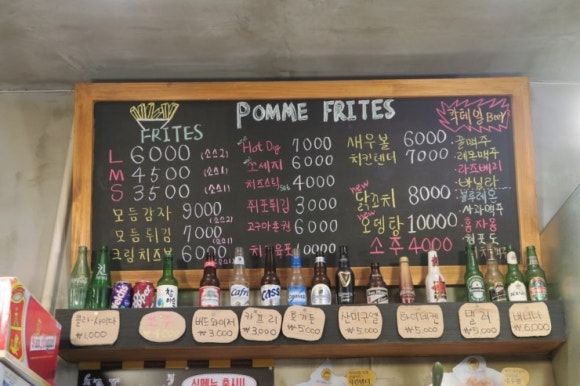 POMME FRITES
FRITES
L 6000 (소스2)
M 4500 (소스1)
S 3500 (소스1)
모듬감자 9000
(소스2)
모듬튀김 7000
크림치즈볼 6000
Hot Dog 7000
소세지 6000
치즈스틱 4000
쥐포튀김 3000
고구마춘권 6000
6000
새우볼 6000
치킨텐더 7000
new
닭꼬치 8000
new
오뎅탕 10000
소주 4000
칵테일 Beer
꿀맥주
레몬맥주
라즈베리
바닐라
블루레몬
사과맥주
홍자몽
청포도
Cafri
CASS
콜라·사이다
₩1,000
버드와이저
₩3,000
카프리
₩3,000
₩5,000
산미구엘
₩5,000
하이네켄
₩5,000
₩5,000
₩6,000
신메뉴 출시!!